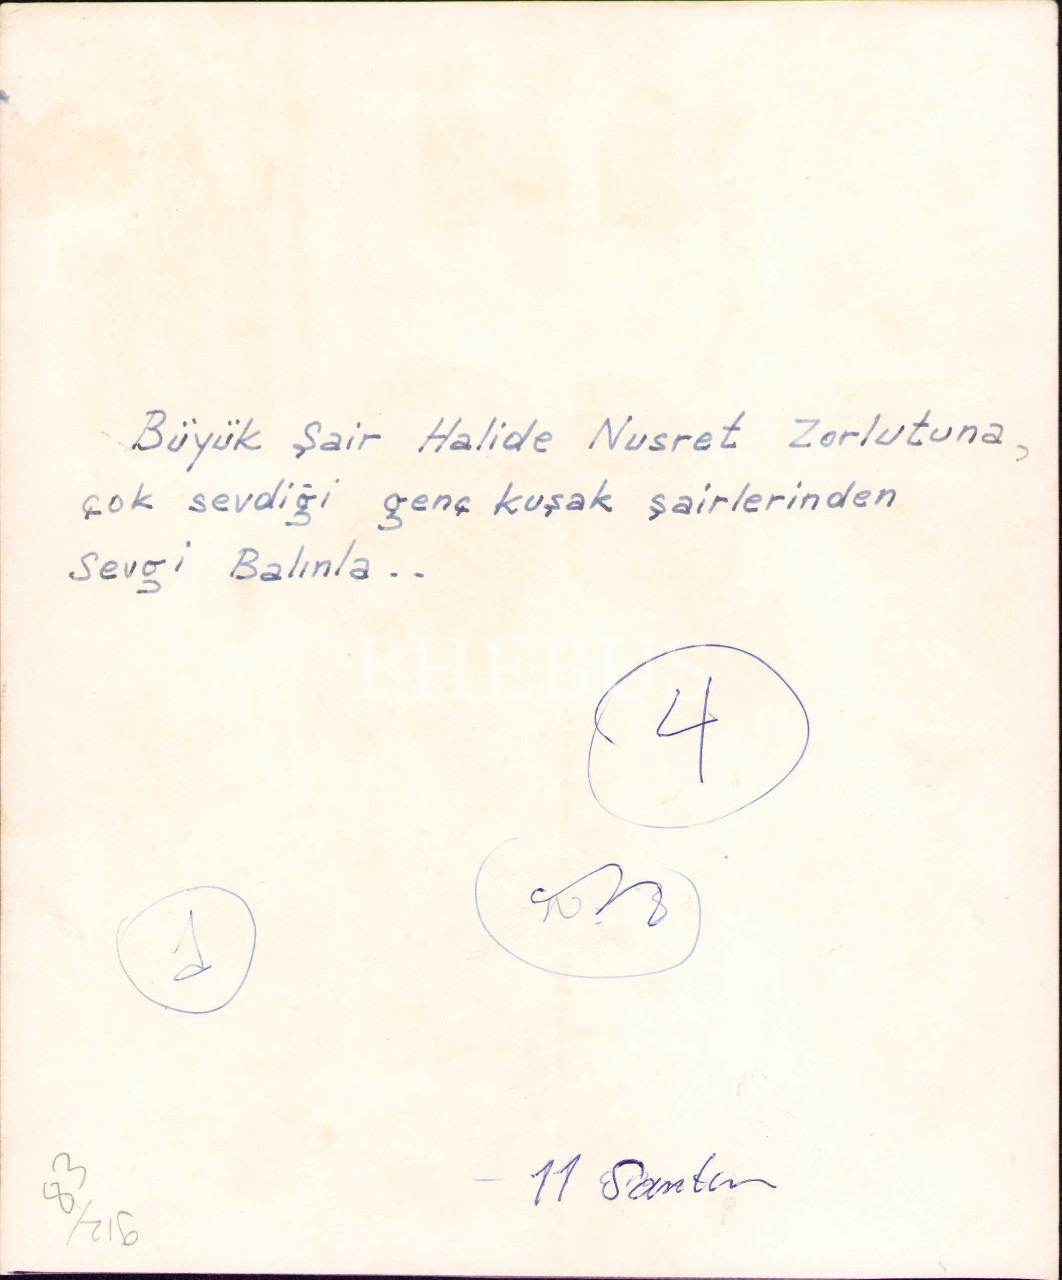 Büyük Şair Halide Nusret Zorlutuna,
çok sevdiği genç kuşak şairlerinden
Sevgi Balınla..
PHEBUS
4
1
- 11 Santim